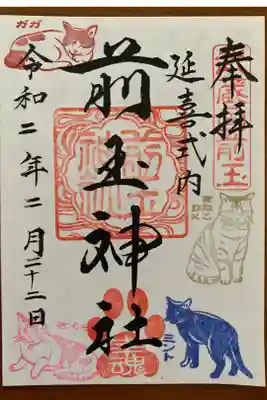 奉拝
延喜式内
前玉神社
令和二年二月二十二日
ガガ
きなこ
さくら
ミント
魂